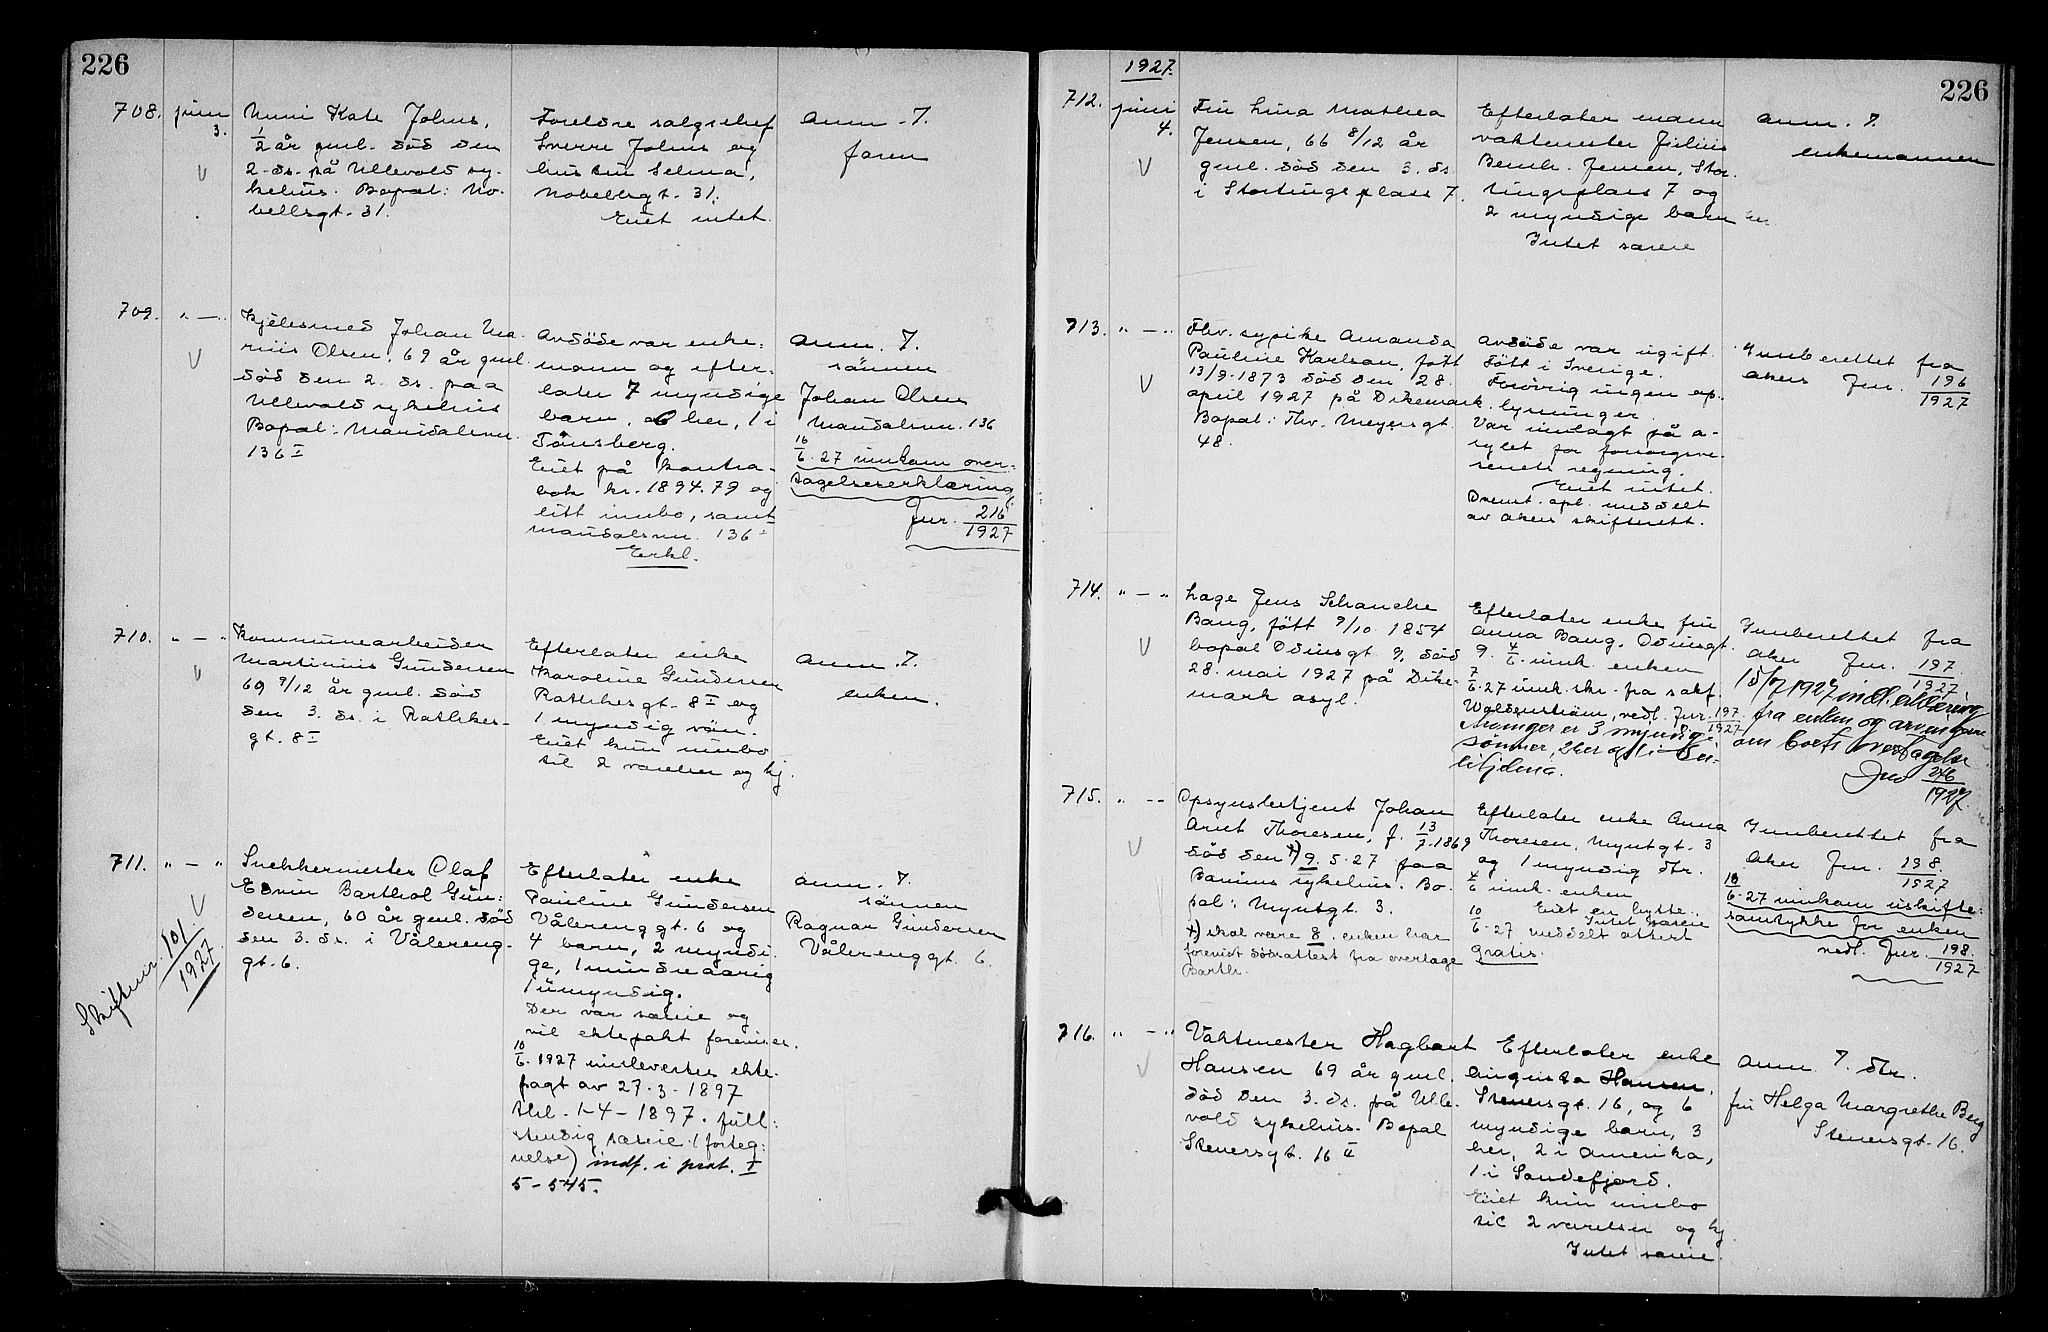 226
708. juni 3.
Unni Kate Johns,
1/2 år gml. död den
2. ds. på Ullevold sy-
kehus. Bopæl: No-
bellsgt. 31.
Foreldre salgschef
Sverre Johns og
hustru Selma,
Nobellsgt. 31.
Eiet intet.
Anm. T.
faren
709. " — "
Kjelesmed Johan Ma-
rius Olsen, 69 år gml.
död den 2. ds. paa
Ullevold sykehus
Bopæl: Maridalsvn.
136 I
Avdöde var enke-
mann og efter-
later 7 myndige
barn, 6 her, 1 i
Tönsberg.
Eiet på kontra-
bok kr. 1894.79 og
litt innbo, samt
Maridalsvn. 136
Erkl.
Anm. T.
sönnen
Johan Olsen
Maridalsvn. 136
16/6.27 innkom over-
tagelseserklæring
Jnr. 216/1927
710. " — "
Kommunearbeider
Martinius Gundersen
69 9/12 år gml. död
den 3. ds. i Rathkes-
gt. 8 I
Efterlater enke
Karoline Gundersen
Rathkesgt. 8 II og
1 myndig sön.
Eiet kun innbo
til 2 værelser og kj.
Anm. T.
enken.
711. " — "
Snekkermester Olaf
Edvin Barthol Gun-
dersen, 60 år gml. död
den 3. ds. i Vålereng-
gt. 6.
Skiftenr. 101/1927
Efterlater enke
Pauline Gundersen
Vålerenggt. 6 og
4 barn, 2 myndi-
ge, 1 mindreaarig
1 umyndig.
Der var særeie og
vil ektepakt forevises.
10/6. 1927 innleverties ekte-
pagt av 27-3-1897
thl. 1-4-1897. full-
stendig særeie (forteg-
nelse) indf. i prot. I
5-545.
Anm. T.
sönnen
Ragnar Gundersen
Vålerenggt. 6.
1927.
226
712. juni 4.
Fru Lina Mathea
Jensen, 66 8/12 år
gml. död den 3. ds.
i Stortingsplass 7.
Efterlater mann
vaktmester Julius
Bernh. Jensen, Stor-
tingsplass 7 og
2 myndige barn her
Intet særeie
Anm. T.
enkemannen
713. " — "
Fhv. sypike Amanda
Pauline Karlson, född
13/9-1873 död den 28.
april 1927 på Dikemark.
Bopæl: Thv. Meyersgt.
48.
Avdöde var ugift.
Född i Sverige.
Forövrig ingen op-
lysninger.
Var innlagt på a-
sylet for forsorgsve-
senets regning.
Eiet intet.
Ovennt. opl. meddelt
av Akers skifterett.
Innberettet fra
Akers Jnr. 196/1927
714. " — "
Lage Jens Schanche
Bang, född 9/10 1854
bopæl Odinsgt 9, död
28. mai 1927 på Dike-
mark asyl.
Efterlater enke fru
Anna Bang, Odinsgt.
9. 4/6. innk. enken
7/6.27 innk. skr. fra sakf.
Waldenström, vedl. Jnr. 197/1927
Arvinger er 3 myndige
sönner, 2 her og 1 i En-
Innberettet fra
Aker Jnr. 197/1927
15/7 1927 indl. erklæring
fra enken og arvingene
om boets overtagelse
Jnr 246/1927.
715. " — "
Opsynsbetjent Johan
Arnt Thoresen, f. 13/7-1869
död den x) 9.5.27 paa
Bærums sykehus. Bo-
pæl: Myntgt. 3.
x) skal være 8. enken har
forevist dödsattest fra overlæge
Barth.
Efterlater enke Anna
Thoresen, Myntgt. 3
og 1 myndig dtr.
4/6 innk. enken
Eiet en hytte.
Intet særeie
10/6-27 meddelt attest
gratis.
Innberettet fra
Aker Jnr. 198/1927
10/6-27 innkom uskifte-
samtykke for enken
vedl. Jnr. 198/1927
716. " — "
Vaktmester Hagbart
Hansen 69 år gml.
död den 3. ds. på Ulle-
vold sykehus. Bopæl
Stenersgt. 16 II
Efterlater enke
Augusta Hansen,
Stenersgt. 16, og 6
myndige barn, 3
her, 2 i Amerika,
1 i Sandefjord.
Eiet kun innbo
til 2 værelser og kj.
Intet særeie.
Anm. T. dtr.
fru Helga Margrethe Berg
Stenersgt. 16.